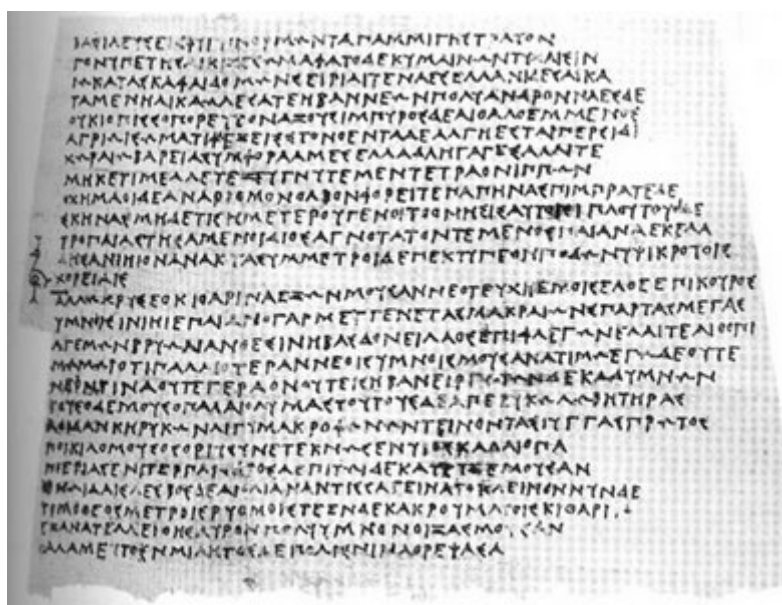 ΒΑΣΙΛΕΥΣΕΙΣΦΥΓΗΝΟΡΜΩΝΤΑΠΑΜΜΙΓΗΣΤΡΑΤΟΝ
ΓΟΝΥΠΕΤΗΣΑΙΚΙΖΕΣΩΜΑΦΑΤΟΔΕΚΥΜΑΙΝΩΝΤΥΧΑΙΣΙΝ
ΙΩΚΑΤΑΣΚΑΦΑΙΔΟΜΩΝΣΕΙΡΙΑΙΤΕΝΑΕΣΕΛΛΑΝΙΔΕΣΑΙΚΑ
ΤΑΜΕΝΗΛΙΚΑΩΛΕΣΑΤΕΗΒΑΝΝΕΩΝΠΟΛΥΑΝΔΡΟΝΝΑΕΣΔΕ
ΟΥΚΙΟΠΙΣΣΟΠΟΡΕΥΤΟΝΑΞΟΥΣΙΜΠΥΡΟΣΔΕΑΙΘΑΛΟΕΜΜΕΝΟΣ
ΑΓΡΙΩΙΣΩΜΑΤΙΦΛΕΞΕΙΣΤΟΝΟΕΝΤΑΔΕΑΛΓΗΕΣΤΑΙΠΕΡΣΙΔΙ
ΧΩΡΑΙΩΒΑΡΕΙΑΣΥΜΦΟΡΑΑΜΕΣΕΛΛΑΔΑΗΓΑΓΕΣΑΛΛΑΙΤΕ
ΜΗΚΕΤΙΜΕΛΛΕΤΕΖΕΥΓΝΥΤΕΜΕΝΤΕΤΡΑΟΝΙΠΠΩΝ
ΟΧΗΜΑΟΙΔΕΑΝΑΡΙΘΜΟΝΟΛΒΟΝΦΟΡΕΙΤΕΝΑΠΗΝΑΣΠΙΜΠΡΑΤΕΔΕ
ΣΚΗΝΑΣΜΗΔΕΤΙΣΗΜΕΤΕΡΟΥΓΕΝΟΙΤΟΟΝΗΣΙΣΑΥΤΟΙΣΙΠΛΟΥΤΟΥΟΙΔΕ
ΤΡΟΠΑΙΑΣΤΗΣΑΜΕΝΟΙΔΙΟΣΑΓΝΟΤΑΤΟΝΤΕΜΕΝΟΣΠΑΙΑΝΑΕΚΕΛΑ
ΔΗΣΑΝΙΗΙΟΝΑΝΑΚΤΑΣΥΜΜΕΤΡΟΙΔΕΠΕΚΤΥΠΕΟΝΠΟΔΩΝΥΨΙΚΡΟΤΟΙΣ
ΧΟΡΕΙΑΙΣ
ΑΛΛΩΧΡΥΣΕΟΚΙΘΑΡΙΝΑΕΞΩΝΜΟΥΣΑΝΝΕΟΤΕΥΧΗΕΜΟΙΣΕΛΘΕΕΠΙΚΟΥΡΟΣ
ΥΜΝΟΙΣΙΝΙΗΙΕΠΑΙΑΝΟΓΑΡΜΕΥΓΕΝΕΤΑΣΜΑΚΡΑΙΩΝΣΠΑΡΤΑΣΜΕΓΑΣ
ΑΓΕΜΩΝΒΡΥΩΝΑΝΘΕΣΙΝΗΒΑΣΔΟΝΕΙΛΑΟΣΕΠΙΦΛΕΓΩΝΕΛΑΙΤΕΑΙΘΟΠΙ
ΜΩΜΩΙΟΤΙΠΑΛΑΙΟΤΕΡΑΝΝΕΟΙΣΥΜΝΟΙΣΜΟΥΣΑΝΑΤΙΜΩΕΓΩΔΕΟΥΤΕ
ΝΕΟΝΤΙΝΑΟΥΤΕΓΕΡΑΟΝΟΥΤΕΙΣΗΒΑΝΕΙΡΓΩΤΩΝΔΕΚΑΔΥΜΝΩΝ
ΤΟΥΣΔΕΜΟΥΣΟΠΑΛΑΙΟΛΥΜΑΣΤΟΥΤΟΥΣΔΑΠΕΡΥΚΩΛΩΒΗΤΗΡΑΣ
ΑΟΙΔΑΝΚΗΡΥΚΩΝΛΙΓΥΜΑΚΡΟΦΩΝΩΝΤΕΙΝΟΝΤΑΣΙΥΓΓΑΣΠΡΩΤΟΣ
ΠΟΙΚΙΛΟΜΟΥΣΟΣΟΡΙΥΣΥΝΕΤΕΚΝΩΣΕΝΥΙΟΣΚΑΛΛΙΟΠΑ
ΠΙΕΡΙΑΣΕΝΙΤΕΡΠΑΝΔΡΟΣΔΕΠΙΤΩΙΔΕΚΑΤΕΥΞΕΜΟΥΣΑΝ
ΕΝΩΙΔΑΙΣΛΕΣΒΟΣΔΕΑΙΟΛΙΑΝΑΝΤΙΣΣΑΓΕΙΝΑΤΟΚΛΕΙΝΟΝΝΥΝΔΕ
ΤΙΜΟΘΕΟΣΜΕΤΡΟΙΣΡΥΘΜΟΙΣΤΕΝΔΕΚΑΚΡΟΥΜΑΤΟΙΣΚΙΘΑΡΙ
ΕΞΑΝΑΤΕΛΛΕΙΘΗΣΑΥΡΟΝΠΟΛΥΥΜΝΟΝΟΙΞΑΣΜΟΥΣΑΝ
ΘΑΛΑΜΕΥΤΟΝΜΙΛΗΤΟΣΔΕΠΟΛΙΣΝΙΝΑΘΡΕΨΑΣΑ